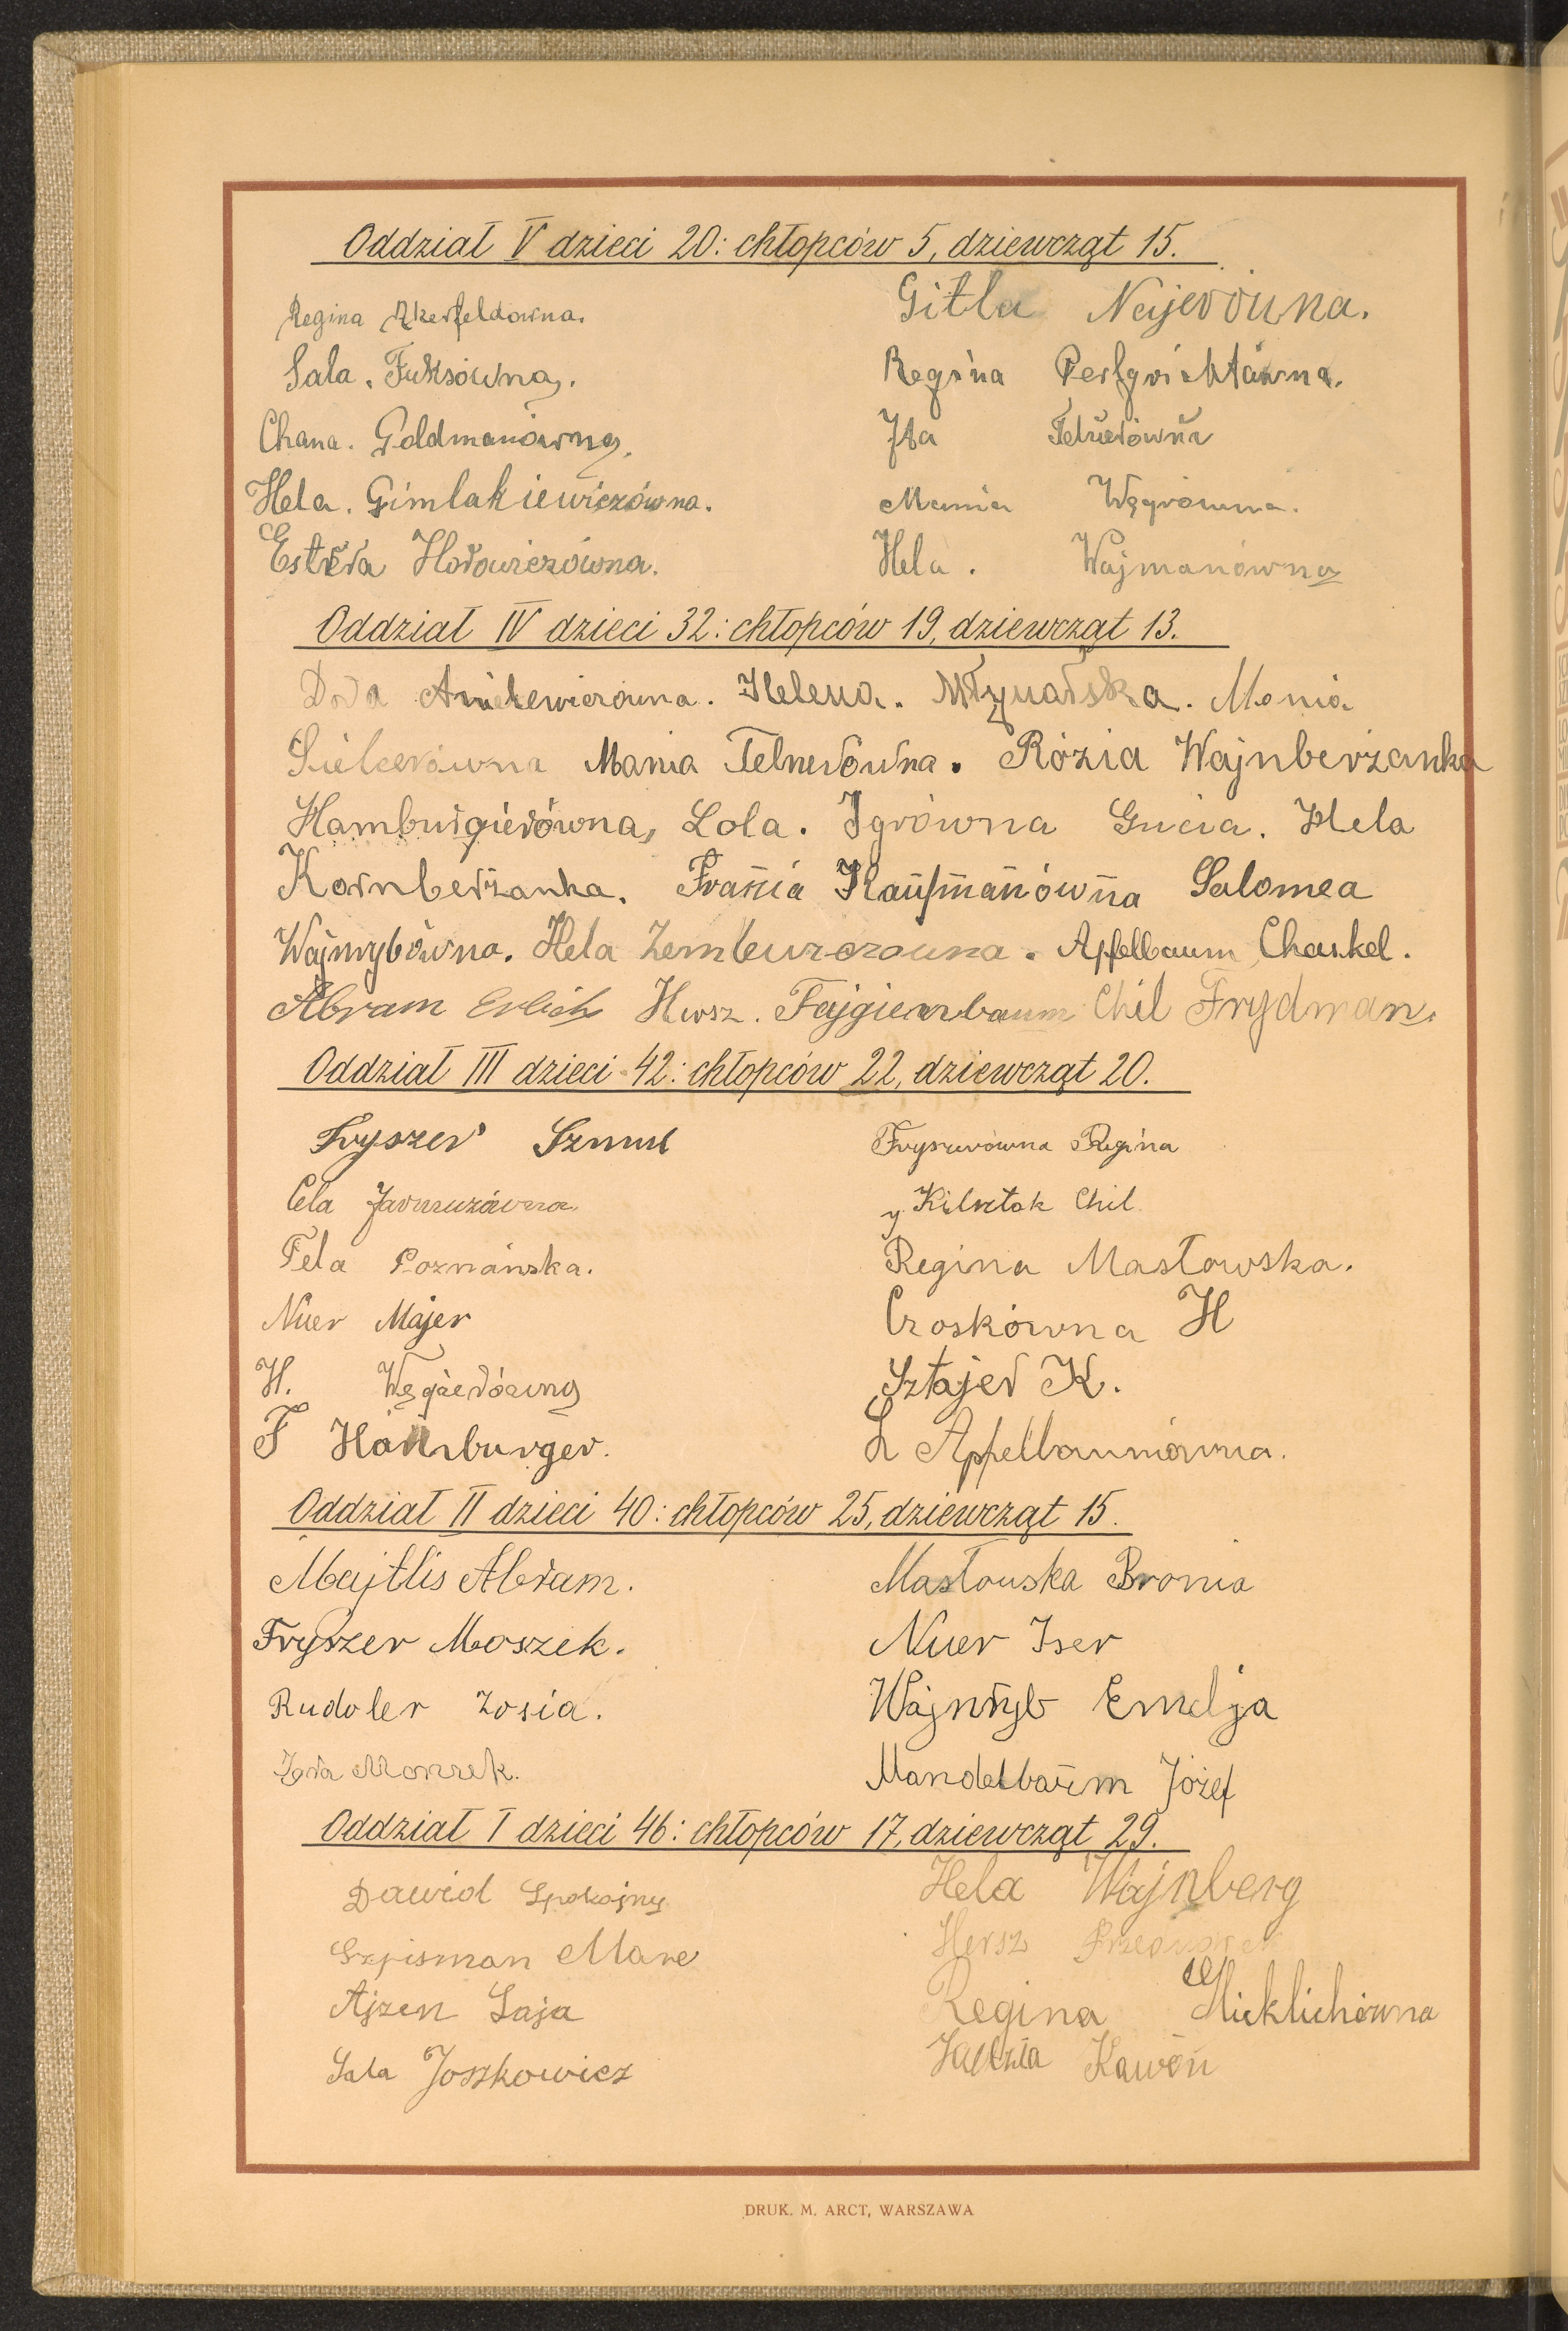 Oddział V dzieci 20: chłopców 5, dziewcząt 15.
Regina Akerfeldówna. Gitla Najerówna.
Sala. Fuksówna. Regina
Chana. Goldmanówna. Ita Telnerówna
Hela. Gimlakiewiczówna. Mania Węgrówna.
Estera Horowiczówna. Hela. Wajmanówna
Oddział IV dzieci 32: chłopców 19, dziewcząt 13.
Dora Anielewiczówna. Helena. Młynarska. Monia
Mania Telnerówna. Rózia Wajnberżanka
Hamburgierówna, Lola. Igrówna Gucia. Hela
Kornberżanka. Frania Kaufmanówna Salomea
Wajnrybówna. Hela Apfelbaum Chaskel.
Abram Erlich Hersz. Fajgienbaum Chil Frydman.
Oddział III dzieci 42: chłopców 22, dziewcząt 20.
Fryszer Szmul Fryszerówna Regina
Cela Jarmużówna Kilsztok Chil
Fela Poznańska. Regina Masłowska.
Nuer Majer Czoskówna H
H. Węgierówna Sztajer K.
F Hamburger. L Apfelbaumówna.
Oddział II dzieci 40: chłopców 25, dziewcząt 15.
Majtlis Abram. Masłowska Bronia
Fryszer Moszek. Nuer Iser
Rudoler Zosia. Wajnryb Emelja
Moszek. Mandelbaum Józef
Oddział I dzieci 46: chłopców 17, dziewcząt 29.
Dawid Spokojny Hela Wajnberg
Szpisman Mare Hersz
Ajzen Laja Regina Micklichówna
Sala Joszkowicz Kawon
DRUK. M. ARCT, WARSZAWA